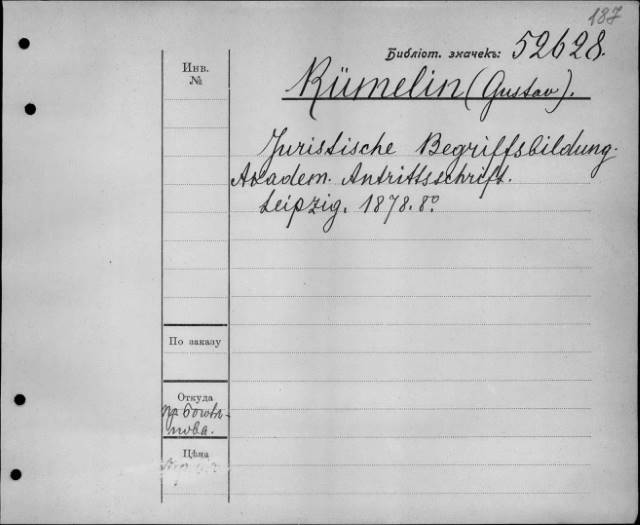 187
Библіот. значекъ: 52628.
Инв.
№
Rümelin (Gustav).
Juristische Begriffsbildung.
Academ. Antrittsschrift.
Leipzig. 1878. 8º
По заказу
Откуда
Цѣна